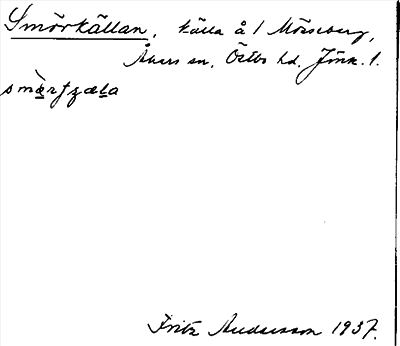 Smörkällan, källa å / Mörseberg,
Åkers sn, Östbo hd. Jönk. l.
smœ̀rʃʒæla
Fritz Andersson 1937.